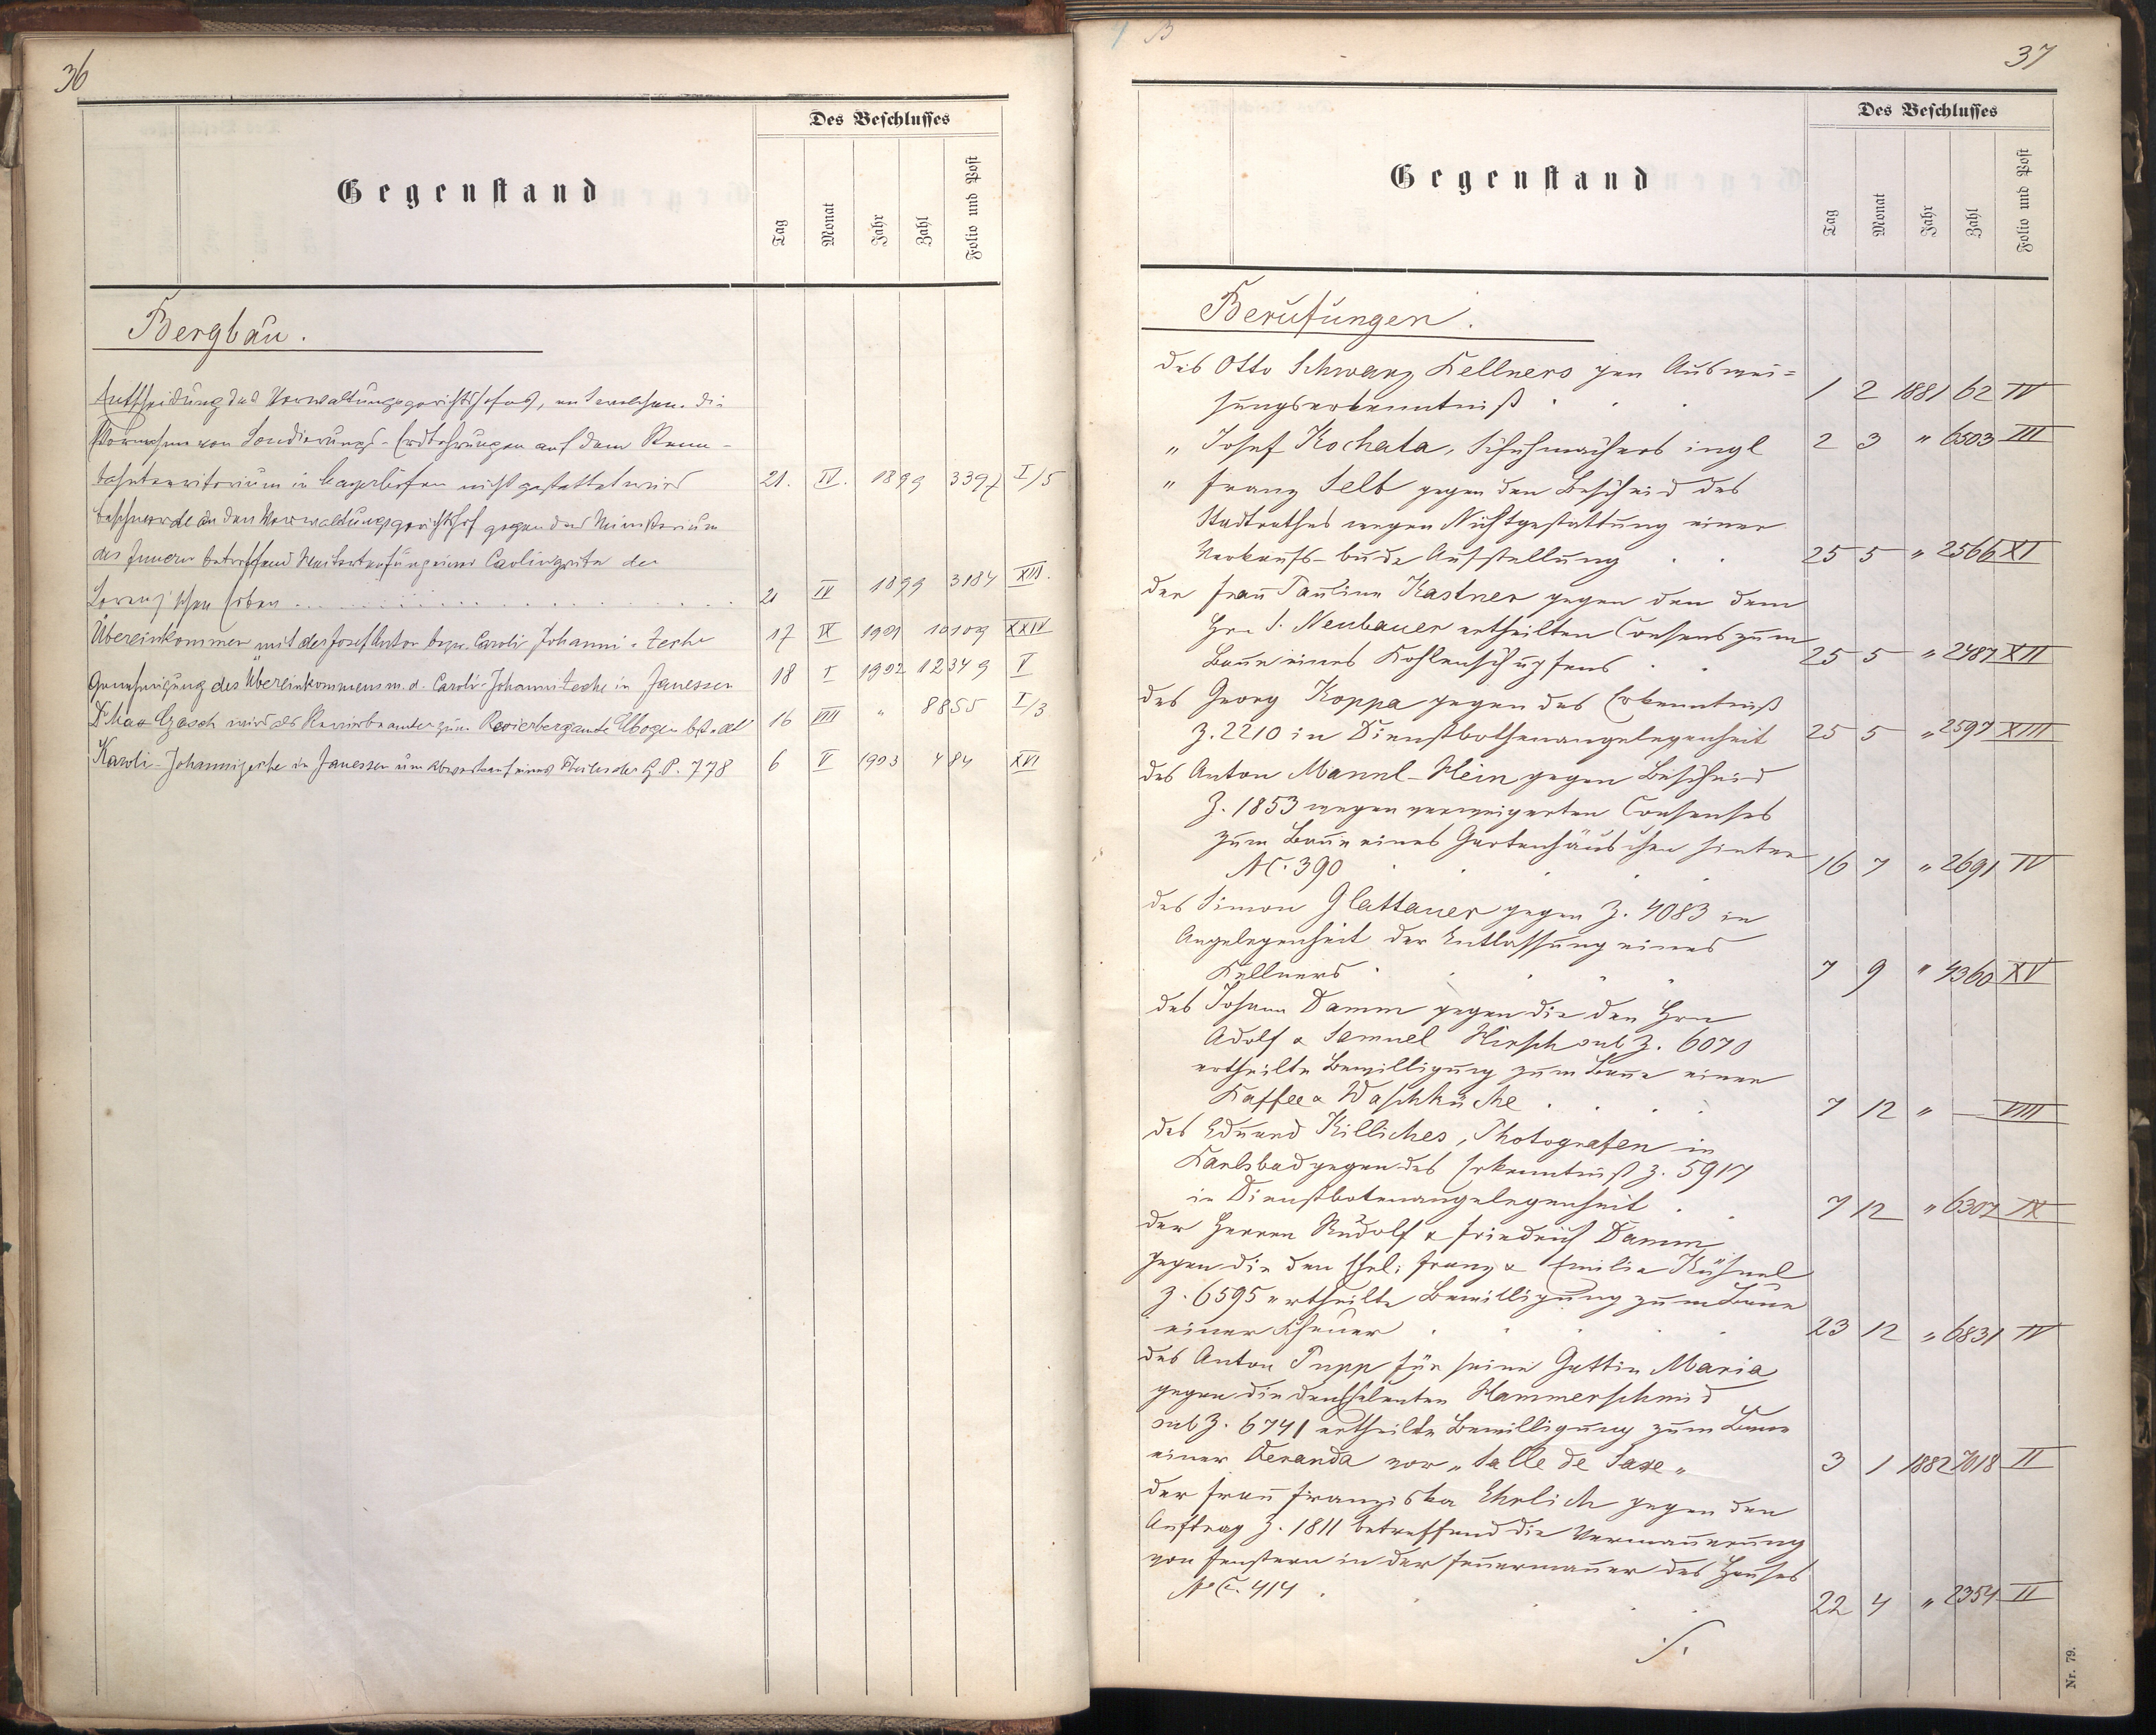 36
Des Beschlusses
Gegenstand
Tag Monat Jahr Zahl Folio und Post
Bergbau.
Entscheidung des Verwaltungsgerichtshofes, mit welcher die
Vornahme von Sondierungs-Erdbohrungen auf dem Renn-
bahnterritorium in Mayerhöfen nicht gestattet wird 21. IV. 1899 3397 I/5
Beschwerde an den Verwaltungsgerichtshof gegen das Ministerium
des Innern betreffend einer der
Lorenz'schen Erben 21 IV 1899 3184 XIII.
Übereinkommen mit der Josef Anton bezw. Caroli Johanni-Zeche 17 IX 1901 10109 XXIV
Genehmigung des Übereinkommens m. d. Caroli-Johannizeche in Janessen 18 I 1902 12349 V
Dr Max wird als Revierbeamter zum Revierbergamte Elbogen 16 VIII " 8855 I/3
Karoli-Johannizeche in Janessen um eines Theiles der G.P. 778 6 V 1903 484 XVI
B
37
Des Beschlusses
Gegenstand
Tag Monat Jahr Zahl Folio und Post
Berufungen.
des Otto Schwarz Kellners gen Auswei=
sungserkenntniß 1 2 1881 62 IV
" Josef Kochata, Schuhmachers ingl 2 3 " 6503 III
" Franz Selb gegen den Bescheid des
Stadtrathes wegen Nichtgestattung einer
Verkaufs-bude Aufstellung 25 5 " 2566 XI
der Frau Pauline Kastner gegen den dem
Hrn S. Neubauer ertheilten Consens zum
Baue eines Kohlenschupfens 25 5 " 2487 XII
des Georg Koppa gegen das Erkenntniß
Z. 2210 in Dienstbothenangelegenheit 25 5 " 2597 XIII
des Anton Mannl-Hein gegen Bescheid
Z. 1853 wegen verweigerten Consenses
zum Baue eines Gartenhäuschen hinter
NC. 390 16 7 " 2691 IV
des Simon Glattauer gegen Z. 4083 in
Angelegenheit der Entlassung eines
Kellners 7 9 " 4360 XV
des Johann Damm gegen die den Hrn
Adolf & Samuel Hirsch sub Z. 6070
ertheilte Bewilligung zum Baue einer
Kaffee & Waschküche 7 12 " — VIII
des Eduard Killiches, Photografen in
Karlsbad gegen das Erkenntniß Z. 5917
in Dienstbotenangelegenheit 7 12 " 6307 IX
der Herren Rudolf & Friedrich Damm
gegen die den Ehel: Franz & Emilia Kühnel
Z. 6595 ertheilte Bewilligung zum Baue
einer Scheuer 23 12 " 6831 IV
des Anton Pupp für seine Gattin Maria
gegen die den Eheleuten Hammerschmid
sub Z. 6741 ertheilte Bewilligung zum Baue
einer Veranda vor „Salle de Saxe" 3 1 1882 7018 II
der Frau Franziska Ehrlich gegen den
Auftrag Z. 1811 betreffend die Vermauerung
von Fenstern in der Feuermauer des Hauses
No C. 414 22 4 " 2354 II
./.
Nr. 79.